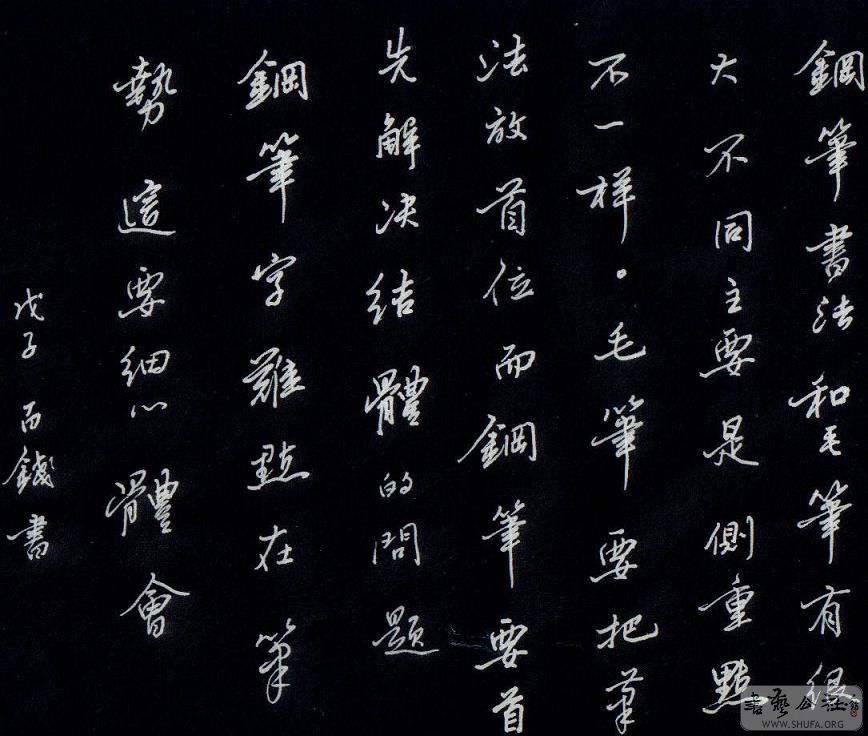 鋼筆書法和毛筆有很
大不同主要是側重點
不一样。毛筆要把筆
法放首位而鋼筆要首
先解决结體的問题
鋼筆字難點在筆
勢這要细心體會
戊子 百錢書
書藝公社
WWW.SHUFA.ORG